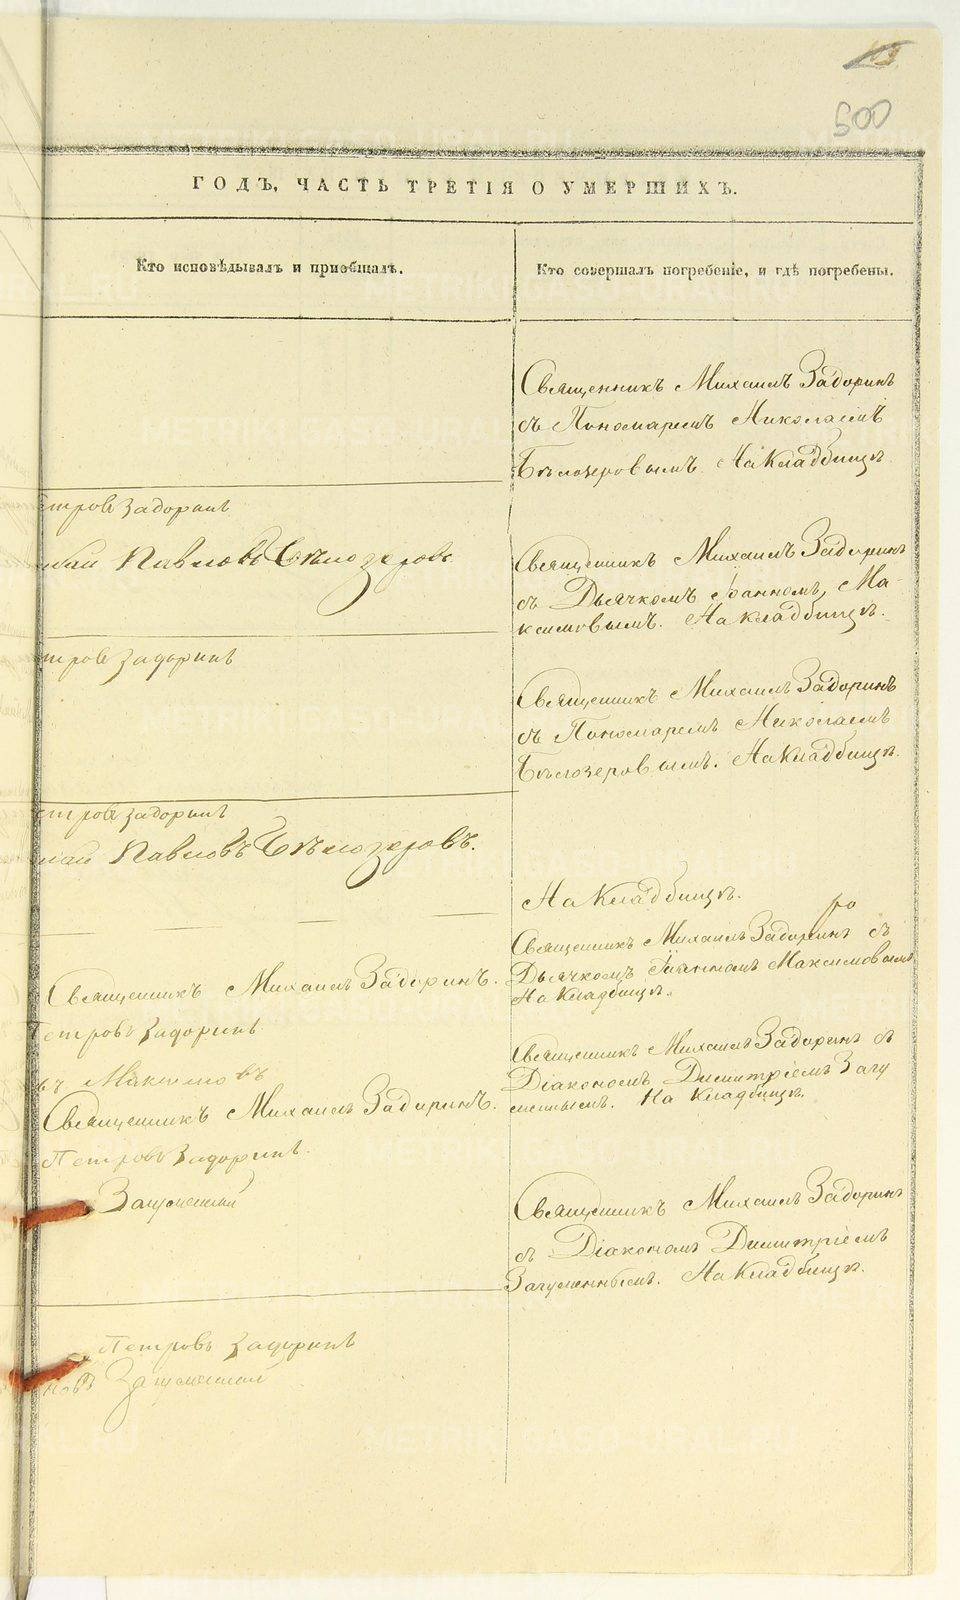 500
ГОДЪ, ЧАСТЬ ТРЕТІЯ О УМЕРШИХЪ.
Кто исповѣдывалъ и пріобщалъ.
Кто совершалъ погребеніе, и гдѣ погребены.
Священникъ Михаилъ Задоринъ
съ Пономаремъ Николаемъ
Бѣлозеровымъ. На Кладбищѣ.
етровъ Задоринъ
лай Павловъ Бѣлозеровъ
Священникъ Михаилъ Задоринъ
съ Дьячкомъ Іоанномъ Ма-
ксимовымъ. На кладбищѣ.
тровъ Задоринъ
Священникъ Михаилъ Задоринъ
съ Пономаремъ Николаемъ
Бѣлозеровымъ. На Кладбищѣ.
етровъ Задоринъ
лай Павловъ Бѣлозеровъ.
На Кладбищѣ.
Священникъ Михаилъ Задоринъ съ
Дьячкомъ Іоанномъ Максимовымъ
На Кладбищѣ.
Священникъ Михаилъ Задоринъ.
Петровъ Задоринъ
въ Максимовъ
Священникъ Михаилъ Задоринъ съ
Діакономъ Димитріемъ Загу
меннымъ. На Кладбищѣ.
Священникъ Михаилъ Задоринъ.
Петровъ Задоринъ.
Загуменный
Священникъ Михаилъ Задоринъ
съ Діакономъ Димитріемъ
Загуменнымъ. На Кладбищѣ.
Петровъ Задоринъ
новъ Загуменный
METRIKI.GASO-URAL.RU